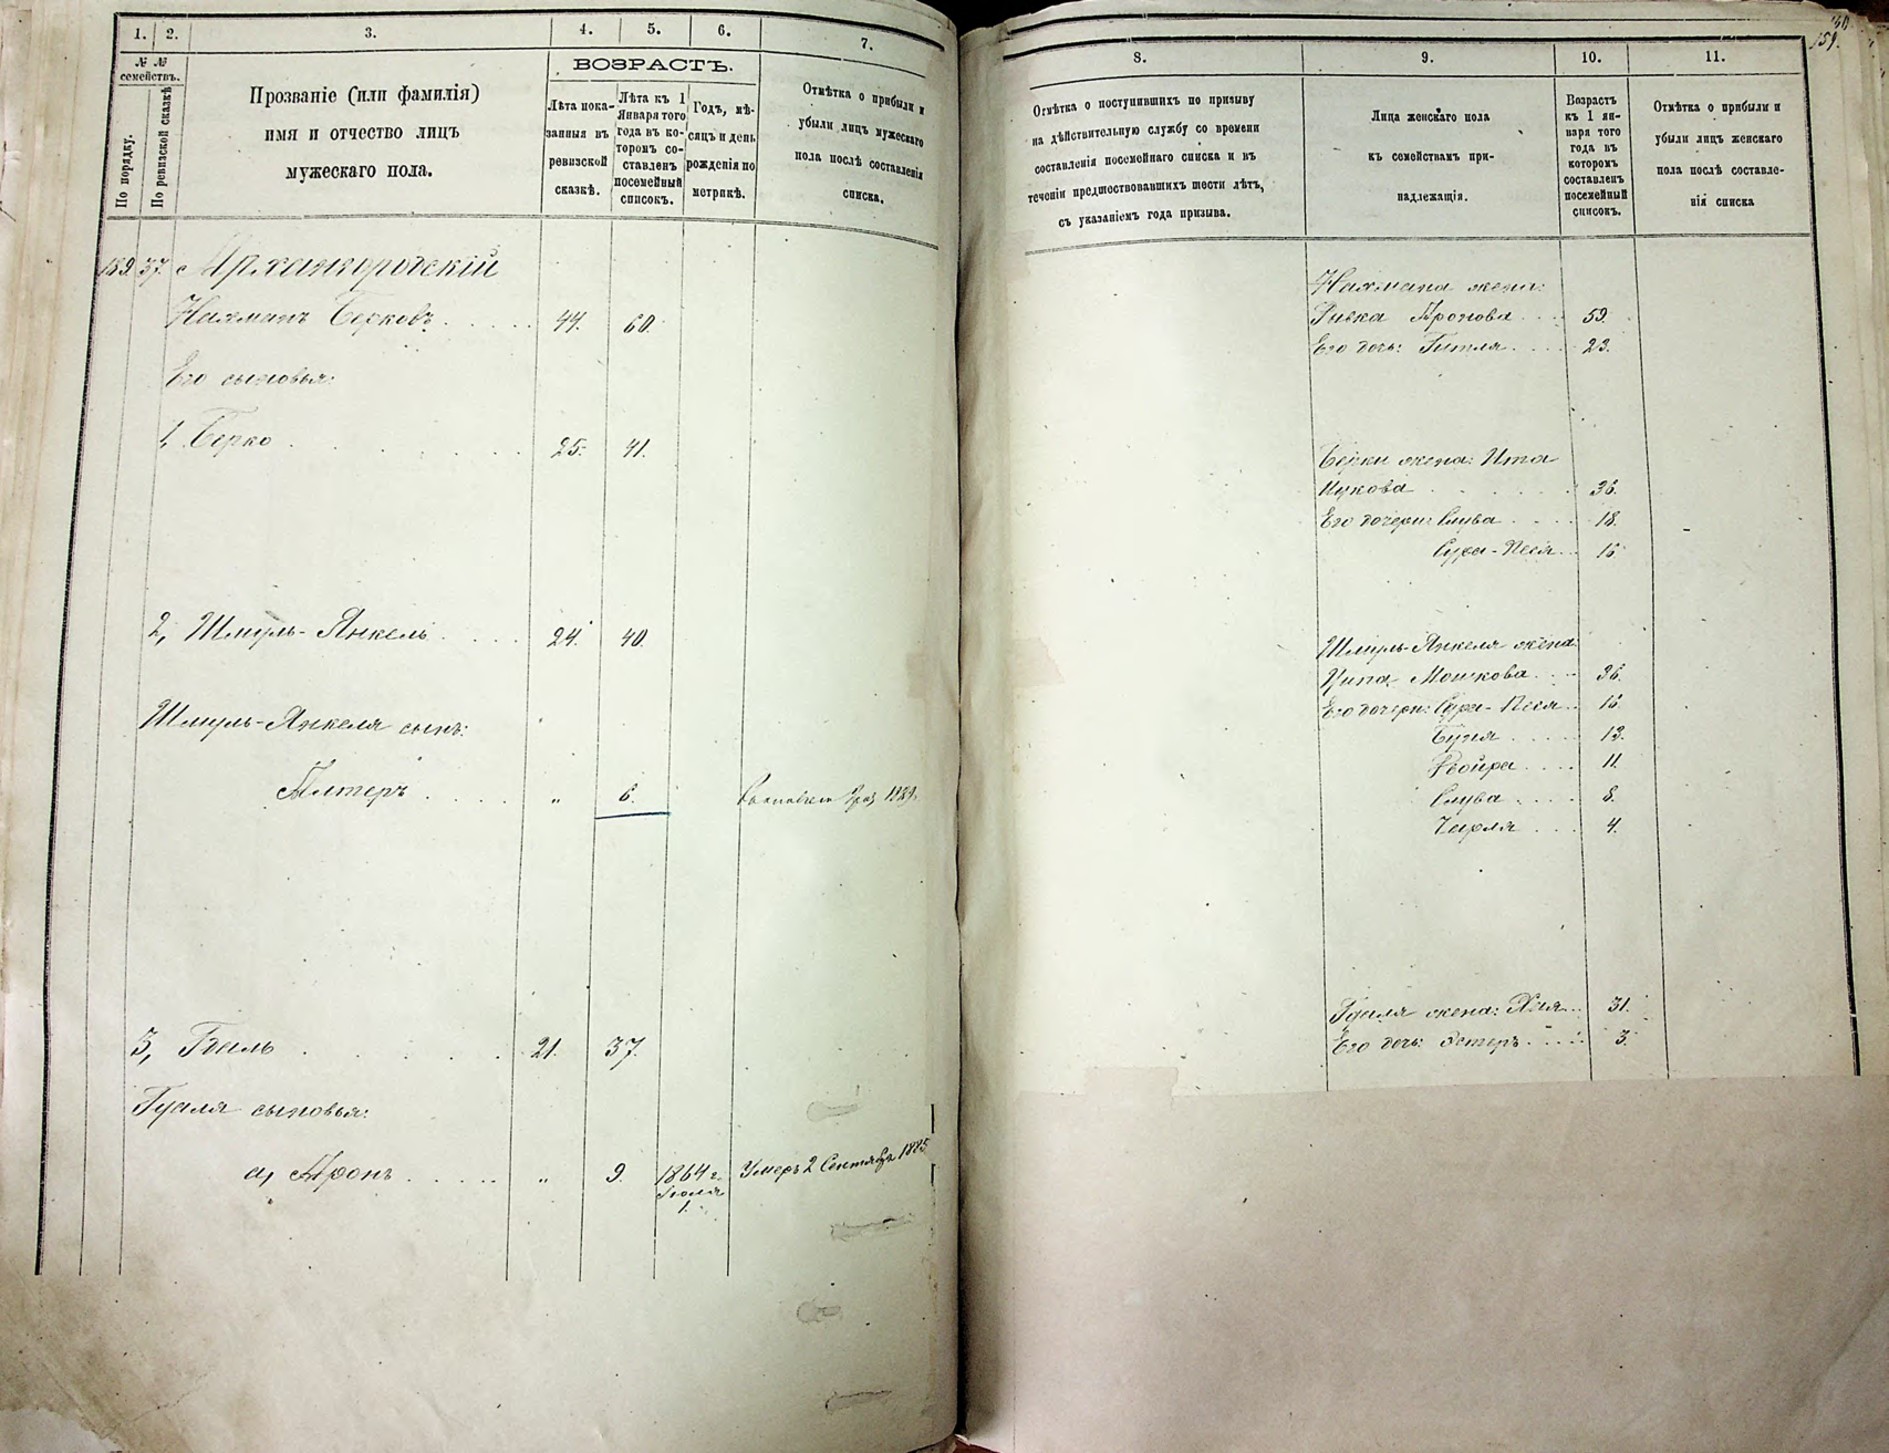 1. 2. 3. 4. 5. 6. 7.
№ №
семействъ.
По порядку.
По ревизской сказкѣ
Прозваніе (или фамилія)
имя и отчество лицъ
мужескаго пола.
ВОЗРАСТЪ.
Лѣта пока-
занныя въ
ревизской
сказкѣ.
Лѣта къ 1
Января того
года въ ко-
торомъ со-
ставленъ
посемейный
списокъ.
Годъ, мѣ-
сяцъ и день
рожденія по
метрикѣ.
Отмѣтка о прибыли и
убыли лицъ мужескаго
пола послѣ составленія
списка.
189. 37. Архангородскій
Нахманъ Берковъ 44. 60.
Его сыновья:
1, Берко 25. 41.
2, Шмуль-Янкель 24. 40.
Шмуль-Янкеля сынъ:
Алтеръ „ 6. 1889.
3, Гдаль 21. 37.
Гдаля сыновья:
а, Аронъ „ 9. 1864 г. Умеръ 2 Сентября 1885
Іюля
1.
159.
8. 9. 10. 11.
Отмѣтка о поступившихъ по призыву
на дѣйствительную службу со времени
составленія посемейнаго списка и въ
теченіи предшествовавшихъ шести лѣтъ,
съ указаніемъ года призыва.
Лица женскаго пола
къ семействамъ при-
надлежащія.
Возрастъ
къ 1 ян-
варя того
года въ
которомъ
составленъ
посемейный
списокъ.
Отмѣтка о прибыли и
убыли лицъ женскаго
пола послѣ составле-
нія списка
Нахмана жена:
Ривка Аронова 59.
Его дочь: Гитля 23.
Берки жена: Ита
Ицкова 36.
Его дочери: Слува 18.
Сура-Песя 15
Шмуль-Янкеля жена:
Ципа Мошкова 36.
Его дочери: Сура-Песя 15.
Буня 13.
Двойра 11.
Слува 8.
Чарля 4.
Гдаля жена: Хая 31.
Его дочь: Эстеръ 3.